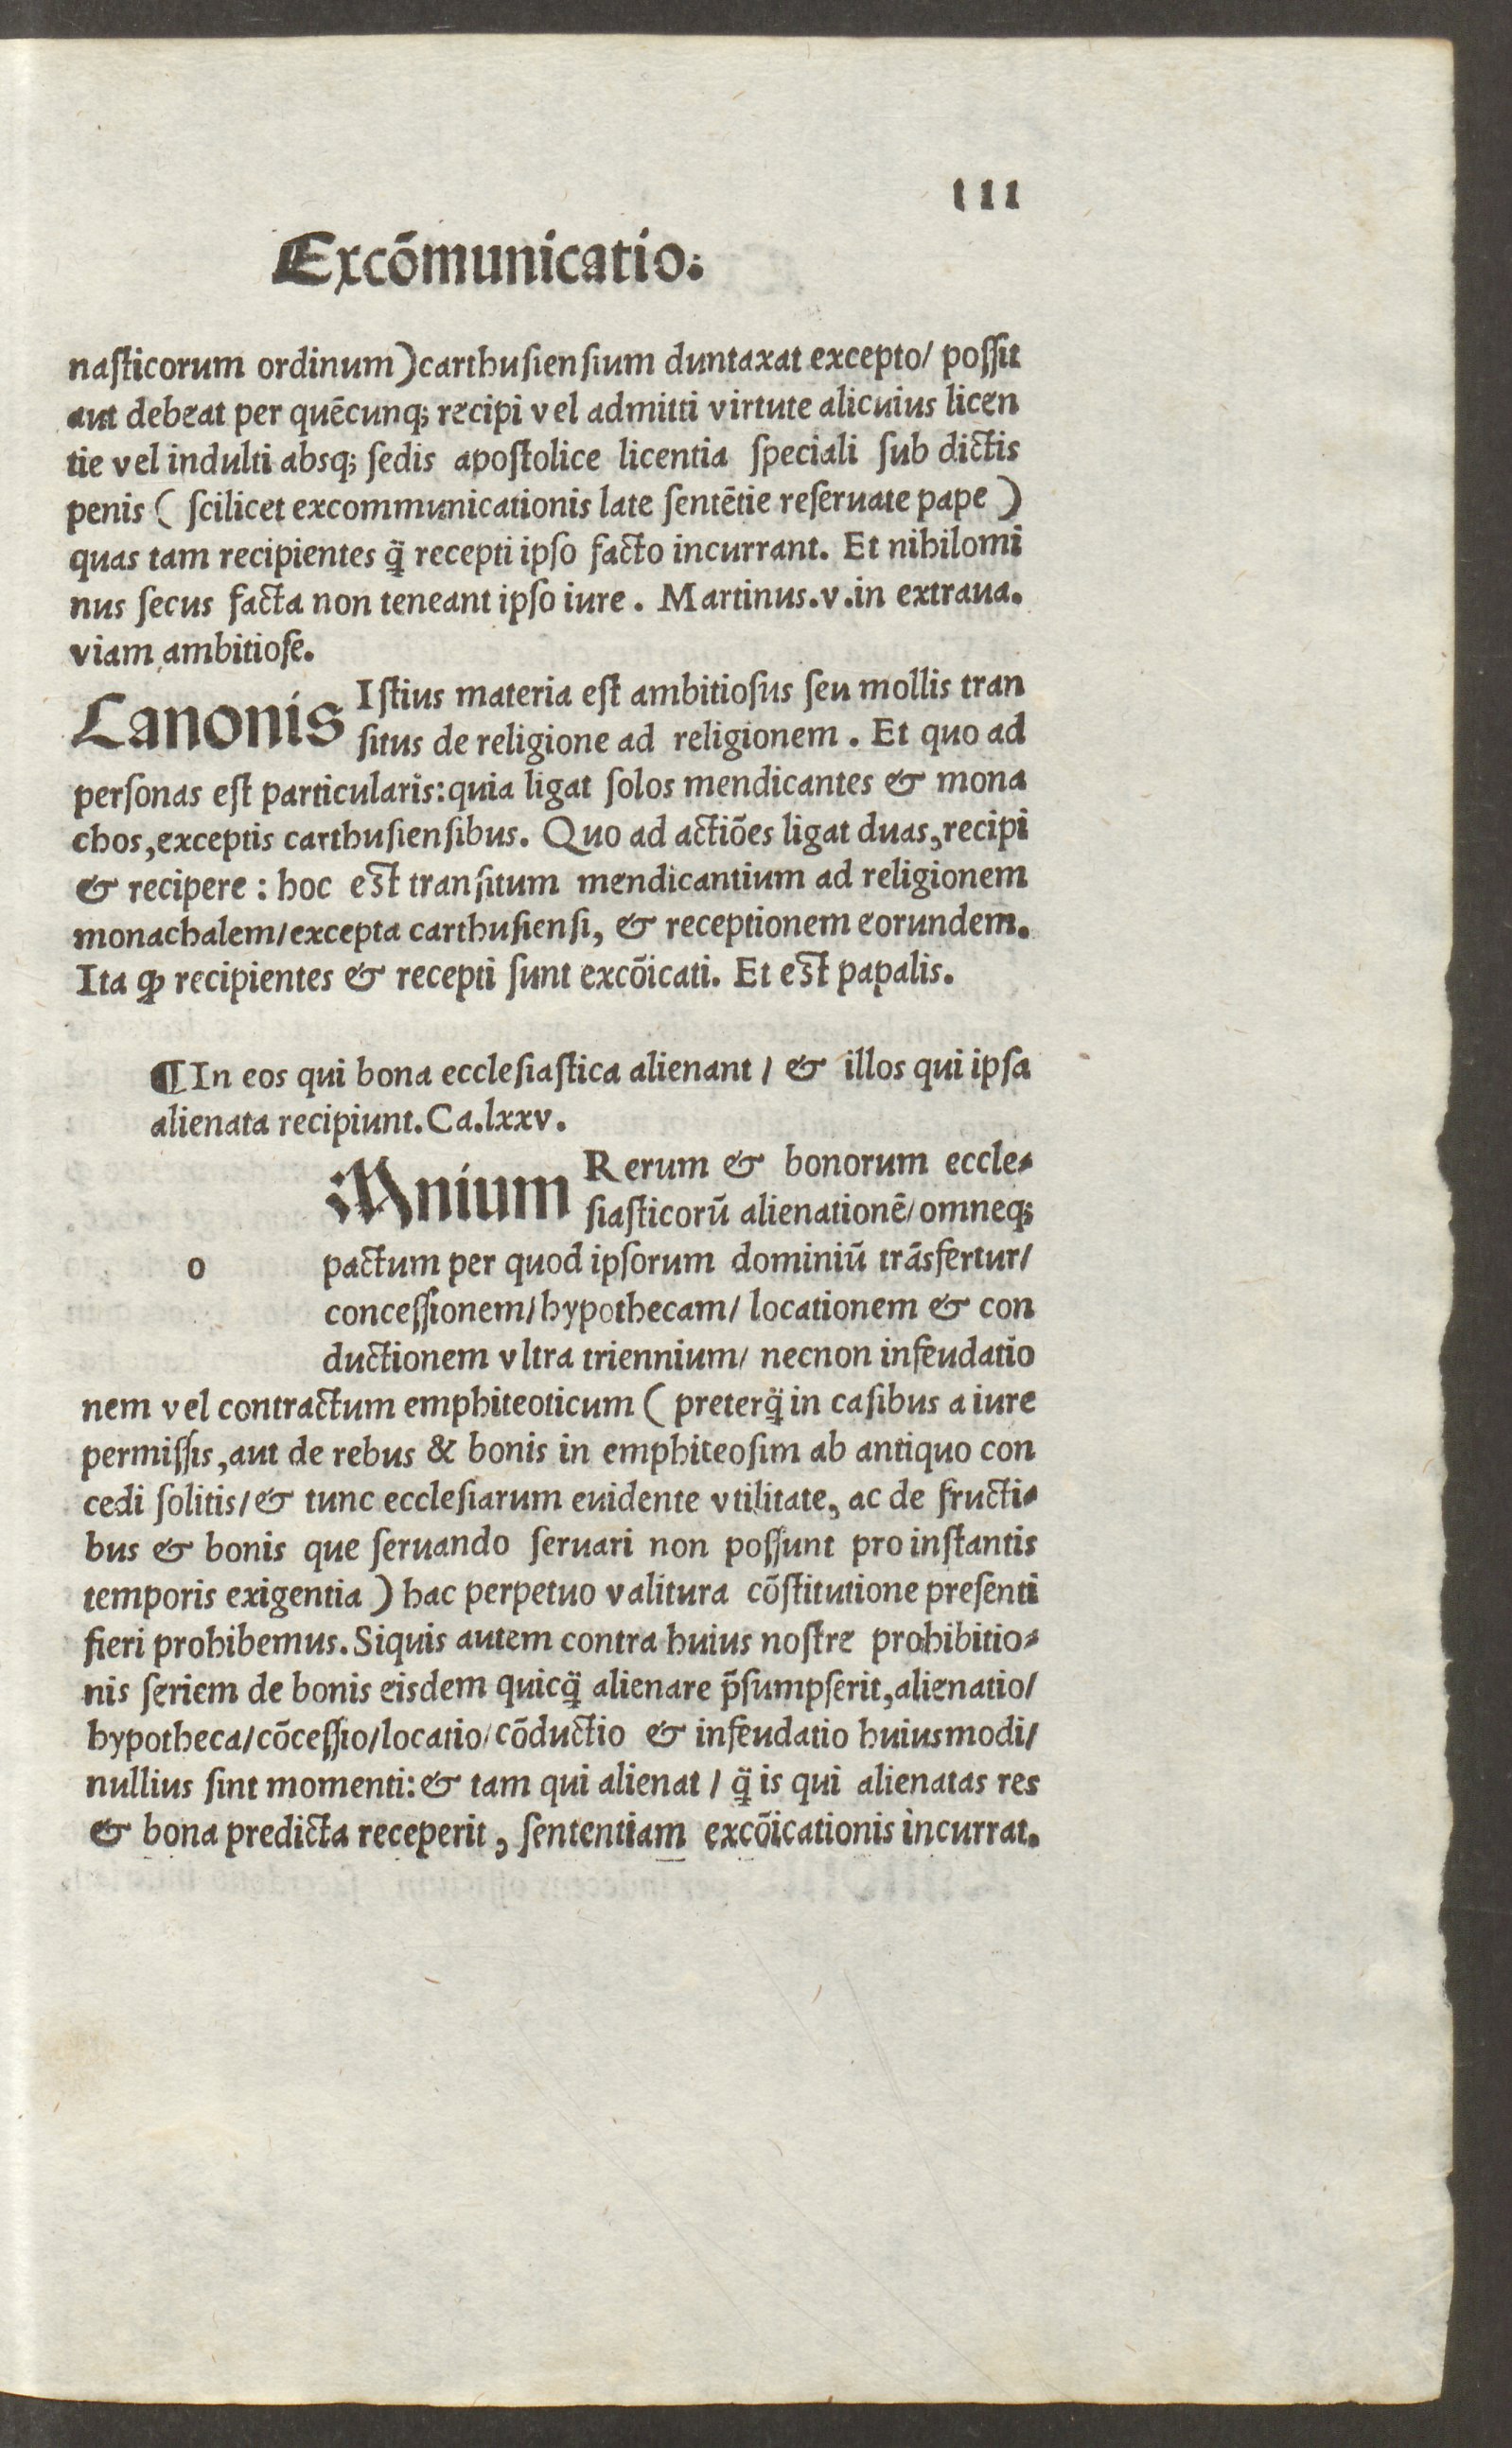 111
Excōmunicatio.
naſticorum ordinum) carthuſienſium duntaxat excepto/ poſſit
aut debeat per quēcunq; recipi vel admitti virtute alicuius licen
tie vel indulti absq; ſedis apoſtolice licentia ſpeciali ſub dictis
penis ( ſcilicet excommunicationis late ſentētie reſeruate pape )
quas tam recipientes q̃ recepti ipſo facto incurrant. Et nihilomi
nus ſecus facta non teneant ipſo iure. Martinus.v.in extraua.
viam ambitioſe.
Canonis Iſtius materia eſt ambitioſus ſeu mollis tran
ſitus de religione ad religionem. Et quo ad
perſonas eſt particularis: quia ligat ſolos mendicantes & mona
chos, exceptis carthuſienſibus. Quo ad actiões ligat duas, recipi
& recipere : hoc eſt tranſitum mendicantium ad religionem
monachalem/ excepta carthuſienſi, & receptionem eorundem.
Ita ꝙ recipientes & recepti ſunt excõicati. Et eſt papalis.
¶ In eos qui bona eccleſiaſtica alienant / & illos qui ipſa
alienata recipiunt. Ca.lxxv.
o
Mnium Rerum & bonorum eccle-
ſiaſticorū alienationē/ omneq;
pactum per quod ipſorum dominiū trāsfertur/
conceſſionem/ hypothecam/ locationem & con
ductionem vltra triennium/ necnon infeudatio
nem vel contractum emphiteoticum ( preterq̃ in caſibus a iure
permiſſis, aut de rebus & bonis in emphiteoſim ab antiquo con
cedi ſolitis/ & tunc eccleſiarum euidente vtilitate, ac de fructi-
bus & bonis que ſeruando ſeruari non poſſunt pro inſtantis
temporis exigentia ) hac perpetuo valitura cōſtitutione preſenti
fieri prohibemus. Siquis autem contra huius noſtre prohibitio-
nis ſeriem de bonis eisdem quicq̃ alienare p̄ſumpſerit, alienatio/
hypotheca/ cōceſſio/ locatio/ cōductio & infeudatio huiusmodi/
nullius ſint momenti: & tam qui alienat / q̃ is qui alienatas res
& bona predicta receperit, ſententiam excõicationis incurrat.